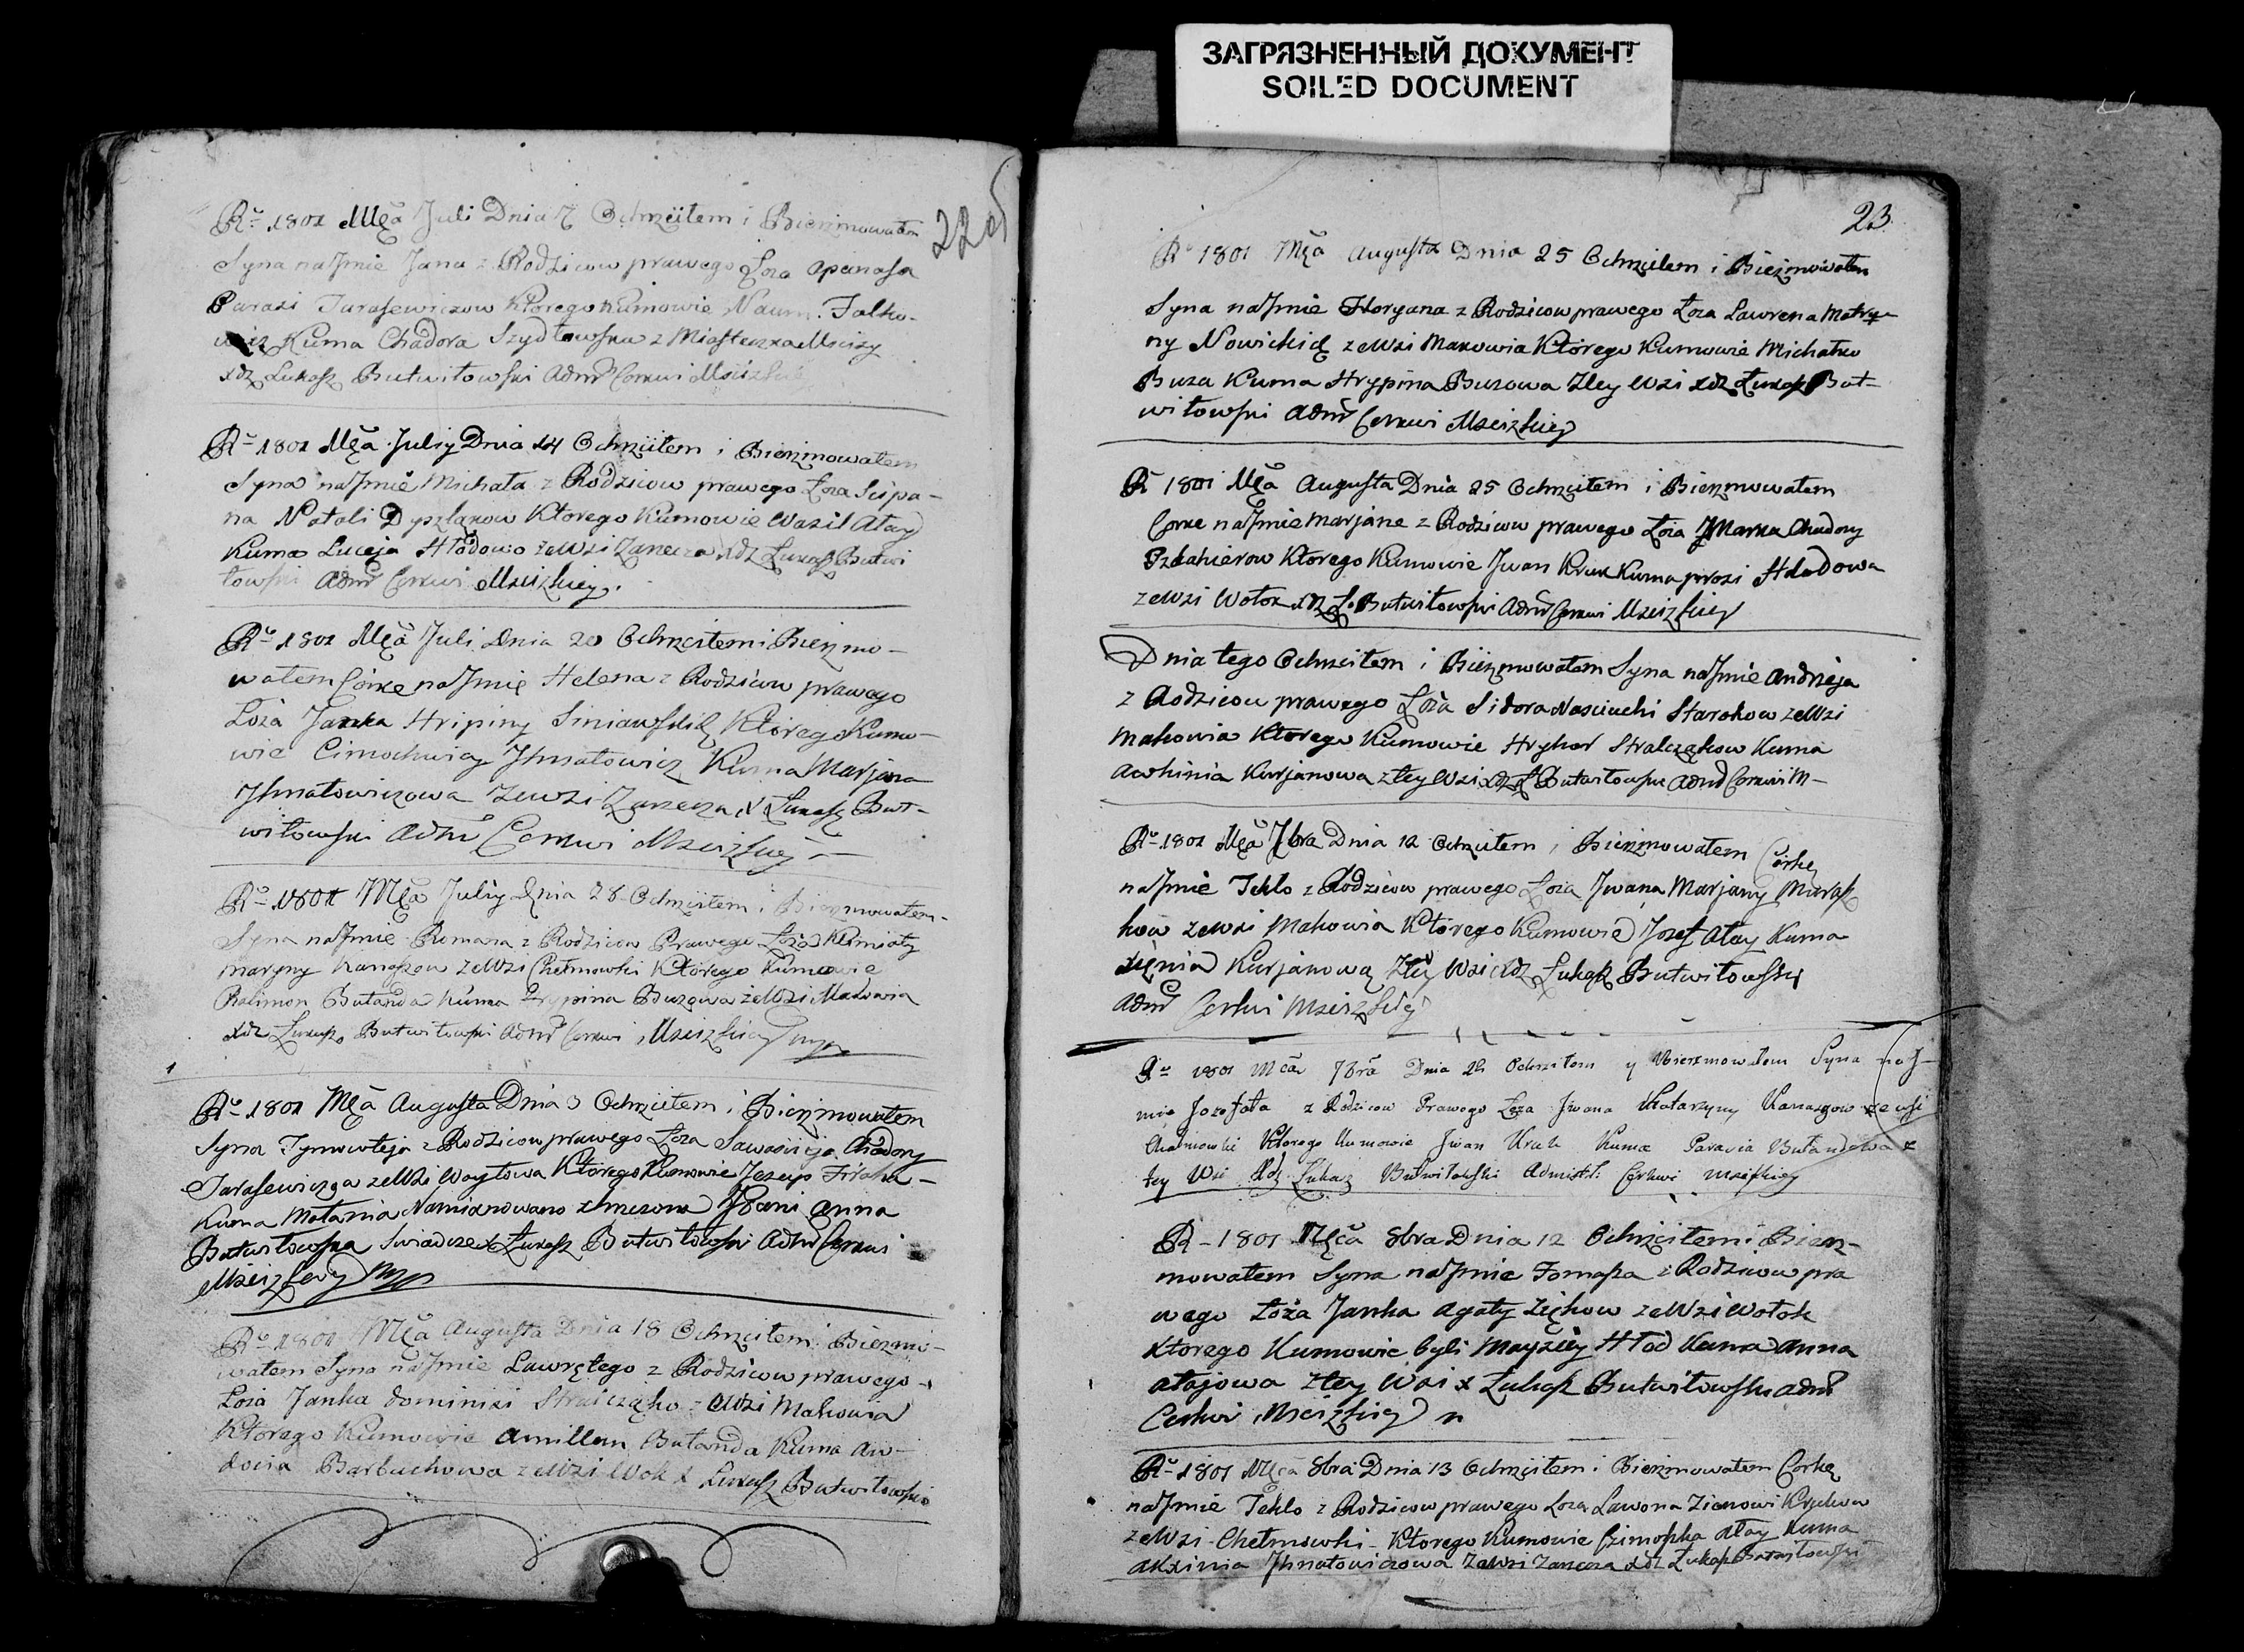 ЗАГРЯЗНЕННЫЙ ДОКУМЕНТ
SOILED DOCUMENT
22 об
Rº 1801 Mca Juli Dnia 7 Ochrzciłem i Bierzmowałem
Syna na Jmie Jana z Rodzicow prawego Łoża Apanasa
Parasi Tarasewiczow Ktorego Kumowie Naum Falko-
wicz Kuma Chadora Szydłowska z Miasteczka Mscizy
xdz Łukasz Butwiłowski Admr Cerkwi
Rº 1801 Mca Julij Dnia 14 Ochrzciłem i Bierzmowałem
Syna na Jmie Michała z Rodzicow prawego Łoża Scipa-
na Natali Dyszlakow Ktorego Kumowie Wasil Ałay
Kuma Luceja Hłodowa ze Wsi Zarecza xdz Łukasz Butwi
łowski Admr Cerkwi Mscizkiey.
Rº 1801 Mca Juli Dnia 20 Ochrzciłem i Bierzmo-
wałem Corke na Jmie Helena z Rodzicow prawego
Łoża Janka Hripiny Siniawskich Ktorego Kumo-
wie Cimochwiey Jhnatowicz Kuma Marjana
Jhnatowiczowa ze Wsi Zarecza x Łukasz But-
wiłowski Admr Cerkwi Mscizkiey
Rº 1801 Mca Julij Dnia 28 Ochrzciłem i Bierzmowałem
Syna na Jmie Romana z Rodzicow Prawego Łoża
Maryny Kanaszow ze Wsi Chełmowki Ktorego Kumowie
Bułanda Kuma Hrypina Buzowa ze Wsi Makowia
xdz Łukasz Butwiłowski Admr Cerkwi Mscizkiey
Rº 1801 Mca Augusta Dnia 3 Ochrzciłem i Bierzmowałem
Syna Tymowteja z Rodzicow prawego Łoża Sawascieja Chadory
Tarasewicza ze Wsi Woytowa Ktorego Kumowie Jezep
Kuma Matania z Anna
Butwiłowska Swiadcze x Łukasz Butwiłowski Admr Cerkwi
Mscizkiey
Rº 1801 Mca Augusta Dnia 18 Ochrzciłem i Bierzmo-
wałem Syna na Jmie Lawrętego z Rodzicow prawego
Łoża Janka Dominisi Stralcząko z Wsi Makowia
Ktorego Kumowie Amillan Bułanda Kuma Aw-
docia Barbuchowa ze Wsi Wok x Łukasz Butwiłowski
23.
Rº 1801 Mca Augusta Dnia 25 Ochrzciłem i Bierzmowałem
Syna na Jmie Floryana z Rodzicow prawego Łoża Lawrena Matry-
ny Nowickich ze Wsi Makowia Ktorego Kumowie Michałko
Buza Kuma Hrypina Buzowa z tey Wsi xdz Łukasz But-
wiłowski Admr Cerkwi Mscizkiey
Rº 1801 Mca Augusta Dnia 25 Ochrzciłem i Bierzmowałem
Corke na Jmie Marjane z Rodzicow prawego Łoża Marka Chadory
Ktorego Kumowie Jwan Kruk Kuma prosi Hładowa
ze Wsi Wołok xdz Ł. Butwiłowski Admr Cerkwi Mscizkiey
Dnia tego Ochrzciłem i Bierzmowałem Syna na Jmie Andrzeja
z Rodzicow prawego Łoża Sidora Nasciuchi Starakow ze Wsi
Makowia Ktorego Kumowie Hryhor Stralcząkow Kuma
Awhinia Kurjanowa z tey Wsi xdz Ł Butwiłowski Admr Cerkwi M-
Rº 1801 Mca 7bra Dnia 12 Ochrzciłem i Bierzmowałem Corkę
na Jmie Teklo z Rodzicow prawego Łoża Jwana Marjany Murasz
kow ze Wsi Makowia Ktorego Kumowie Jozef Ałay Kuma
Kurjanowa z tey Wsi xdz Łukasz Butwiłowski
Admr Cerkwi Mscizkiey
Rº 1801 Mca 7bra Dnia 21 Ochrzciłem y Bierzmowałem Syna na J-
mie Jozefata z Rodzicow Prawego Łoża Jwana Katarzyny Kanaszow ze wsi
Chełmowki Ktorego Kumowie Jwan Kruk Kuma Paraxia Bułandowa z
tey Wsi Xdz Łukasz Butwiłowski Admistr: Cerkwi Mscizkiey
R- 1801 Mca 8bra Dnia 12 Ochrzciłem i Bierz-
mowałem Syna na Jmie Tomasza z Rodzicow pra
wego Łoża Janka Agaty Zięków ze Wsi Wołok
Ktorego Kumowie byli Mayziey Hłod Kuma Anna
Ałajowa z tey Wsi x Łukasz Butwiłowski Admr
Cerkwi Mscizkiey
Rº 1801 Mca 8bra Dnia 13 Ochrzciłem i Bierzmowałem Corkę
na Jmie Teklo z Rodzicow prawego Łoża Lawona Zienowi
ze Wsi Chełmowki Ktorego Kumowie Cimoszka Ałay Kuma
Akxinia Jhnatowiczowa ze Wsi Zarecza xdz Łukasz Butwiłowski